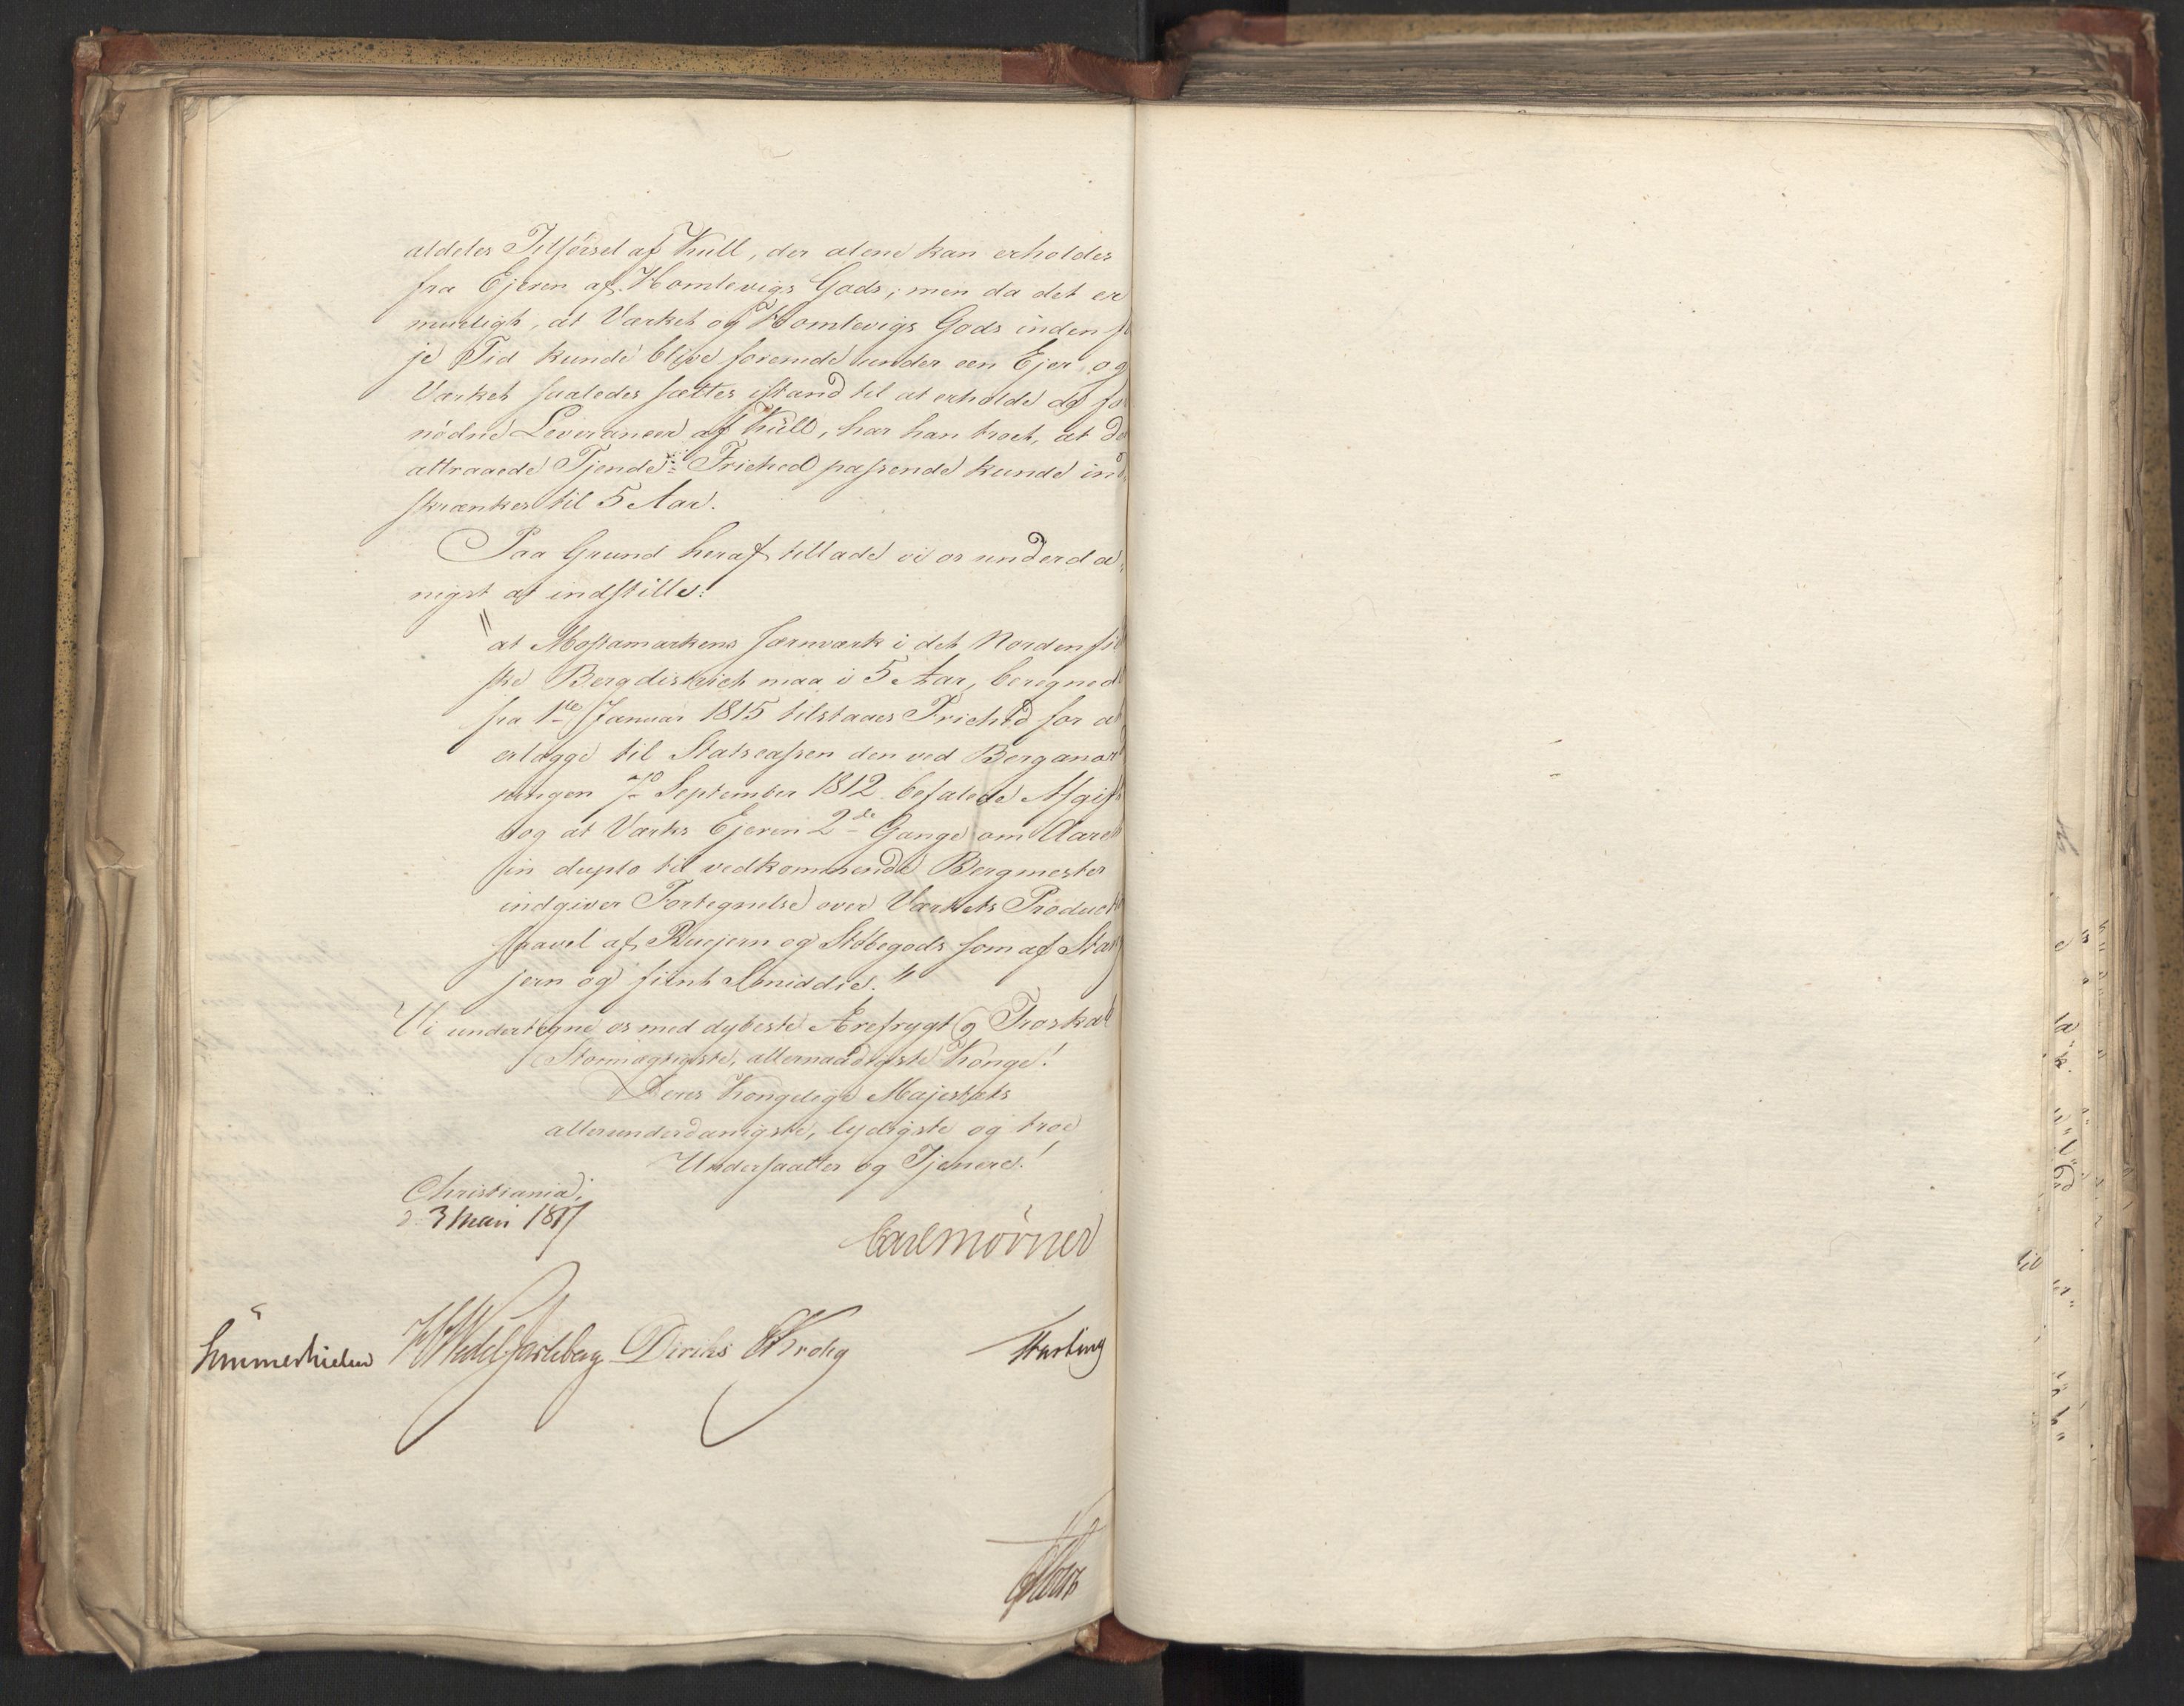 aldeles Tilførsel af Kull, der alene kan erholdes
fra Ejeren af Homlevigs Gods; men da det er
mueligt, at Værket og Homlevigs Gods inden fø
je Tid kunde blive forenede under een Ejer og
Værket saaledes sættes istand til at erholde de for
nødne Leverancer af Kull, har han troet, at de
attraaede Tjende-Friehed passende kunde ind
skrænkes til 5 Aar.
Paa Grund heraf tillade vi os underda
nigst at indstille:
"at Mostamarkens Jernværk i det Nordenfjel
ske Bergdistrict maa i 5 Aar, beregned
fra 1te Januar 1815 tilstaaes Friehed for at
erlægge til Statscassen den ved Berganord
ningen 7de September 1812 befalede Afgift
og at Værks Ejeren 2de Gange om Aaret
in duplo til vedkommende Bergmester
indgiver Fortegnelse over Værkets Product
saavel af Ruejern og Støbegods som af Stang
jern og fiint Smiddie."
Vi undertegne os med dybeste Ærefrygt og Troskab
Stormægtigste, allernaadigste Konge!
Deres Kongelige Majestæts
allerunderdanigste, lydigste og troe
Undersaatter og Tjenere!
Christiania,
d. 3 Mai 1817
Carl Mörner
Sommerhielm HWedel Jarlsberg Diriks Krohg